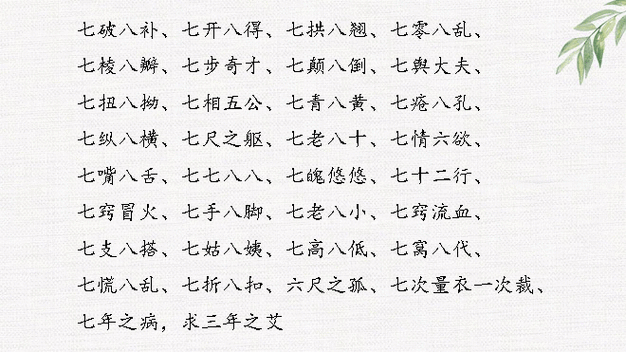 七破八补、七开八得、七拱八翘、七零八乱、
七棱八瓣、七步奇才、七颠八倒、七舆大夫、
七扭八拗、七相五公、七青八黄、七疮八孔、
七纵八横、七尺之躯、七老八十、七情六欲、
七嘴八舌、七七八八、七魄悠悠、七十二行、
七窍冒火、七手八脚、七老八小、七窍流血、
七支八搭、七姑八姨、七高八低、七窝八代、
七慌八乱、七折八扣、六尺之孤、七次量衣一次裁、
七年之病，求三年之艾